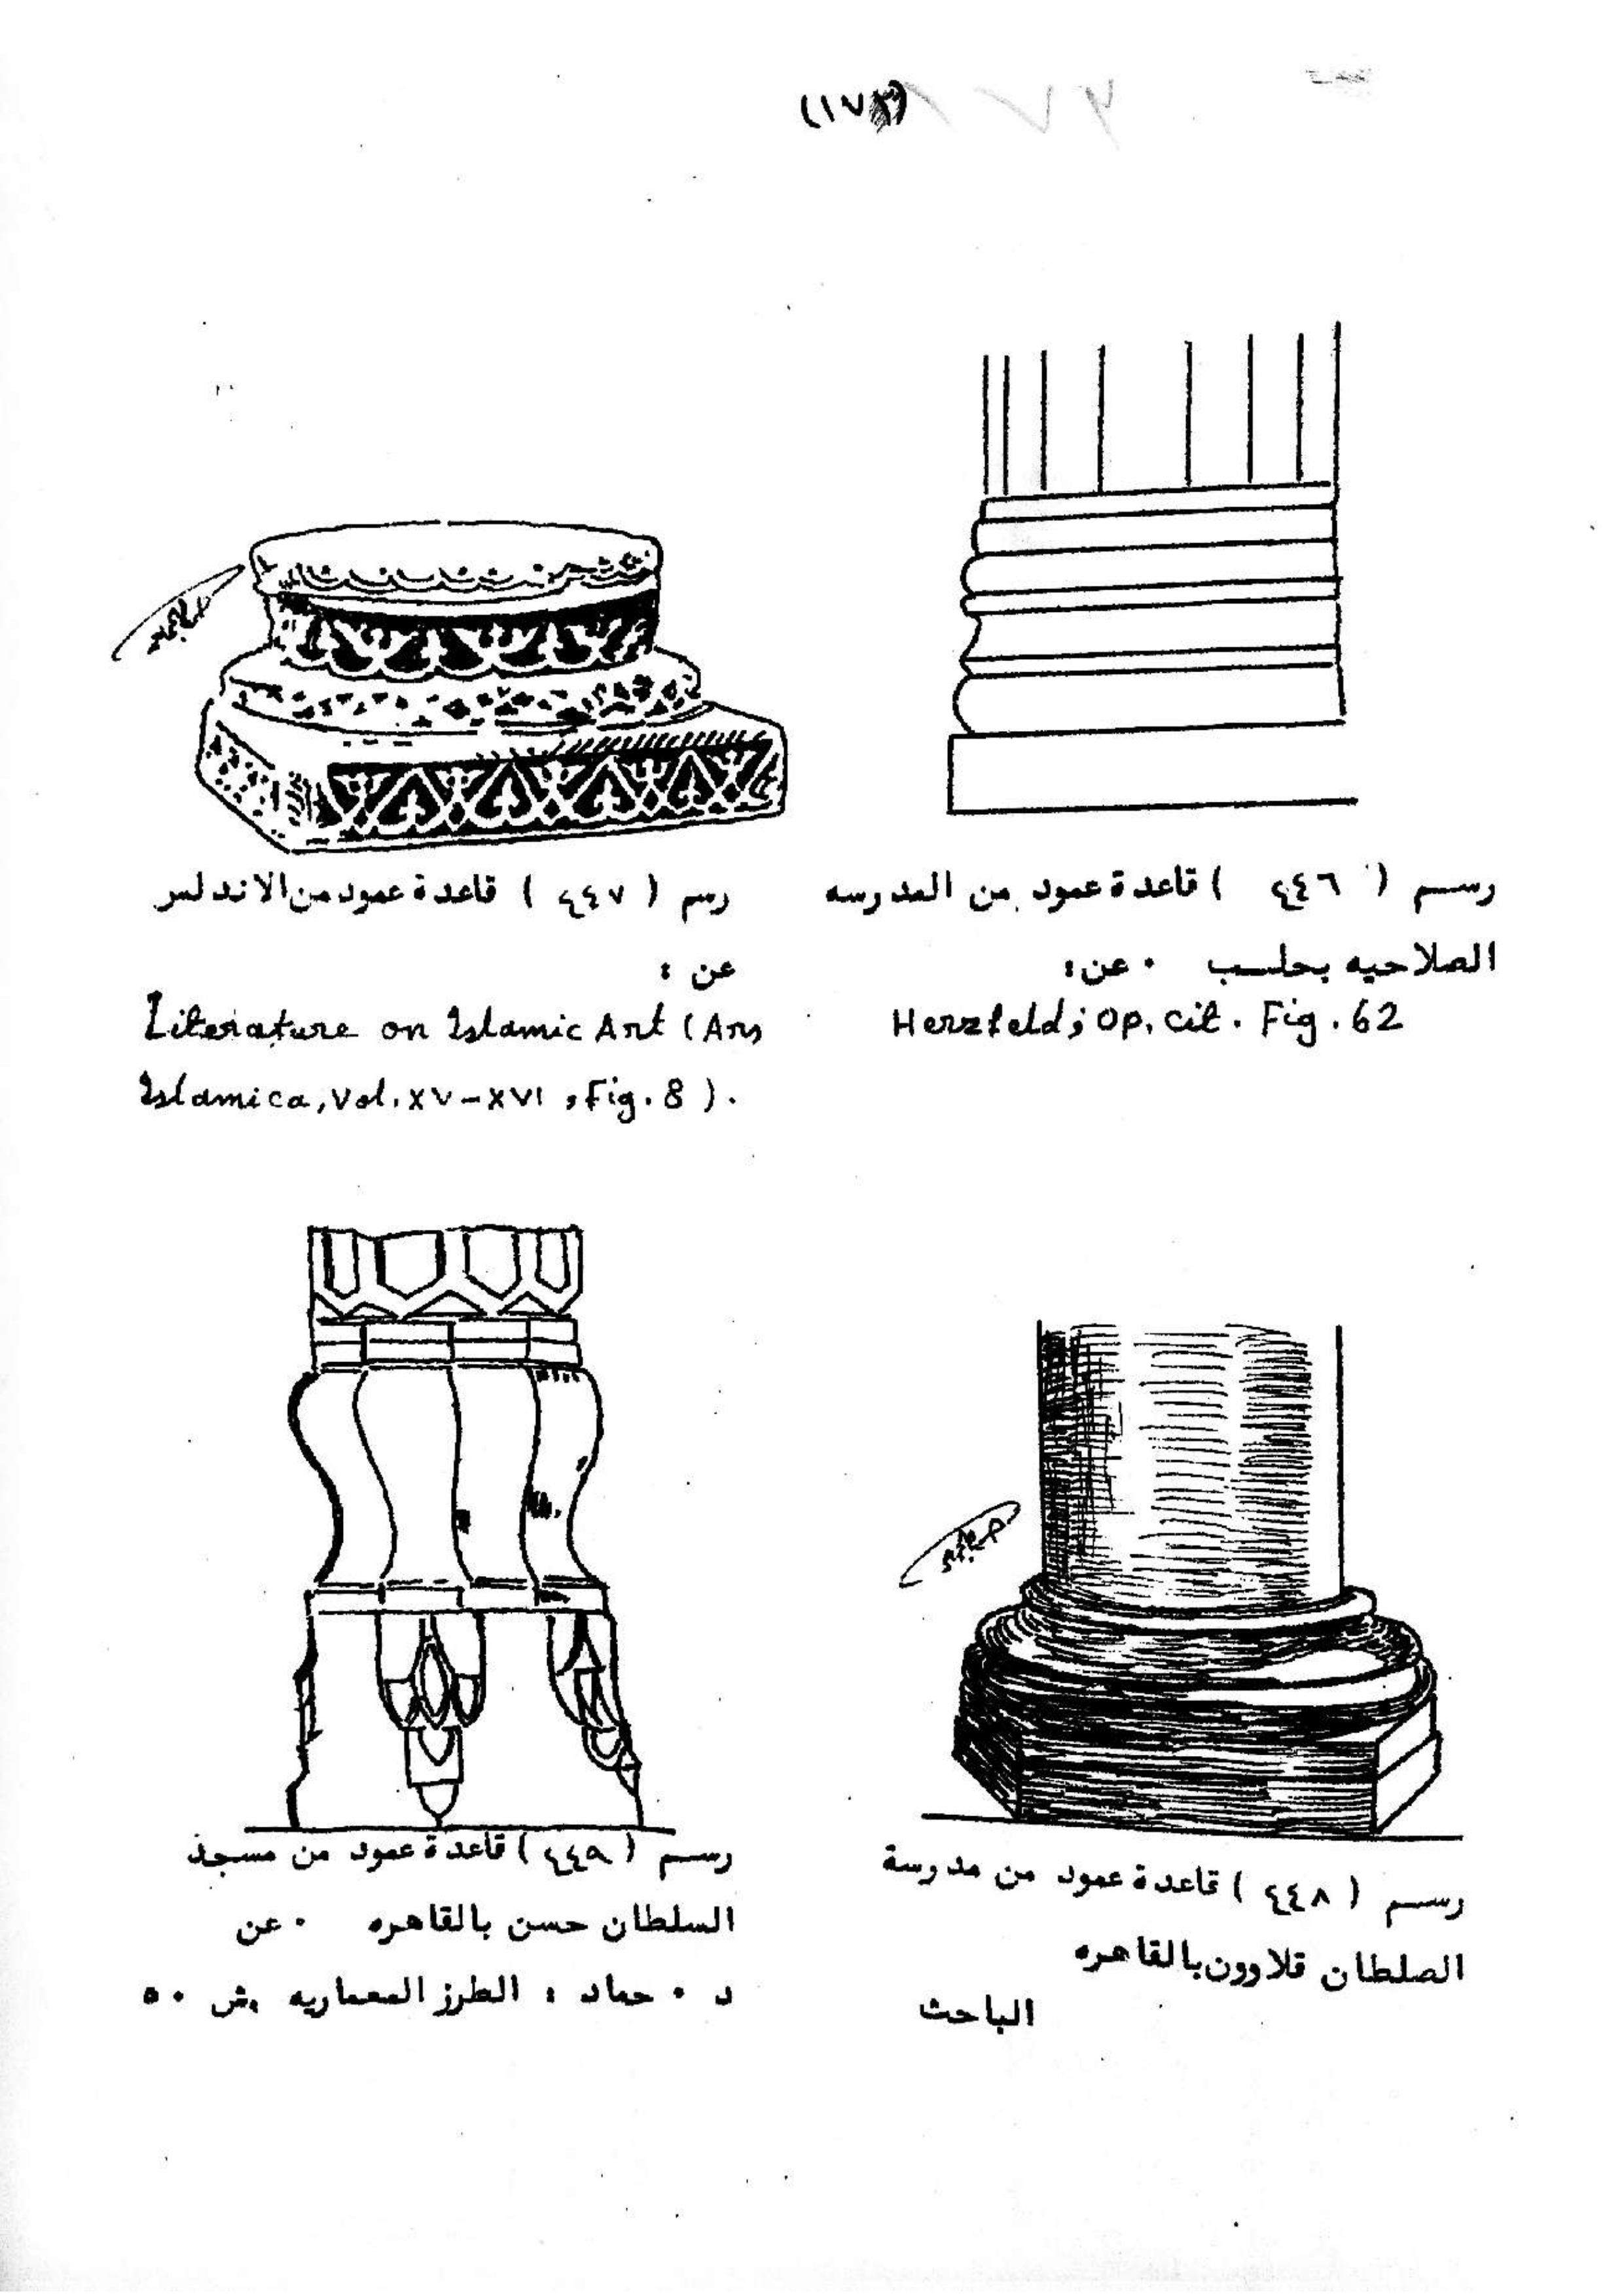 رسم ( ٤٤٦ ) قاعدة عمود من المدرسه
الصلاحيه بحلب ٠ عن:
Herzfeld; Op. cit. Fig. 62
رسم ( ٤٤٧ ) قاعدة عمود من الاندلس
عن :
Literature on Islamic Art (Ars
Islamica, Vol. XV-XVI, Fig. 8 ).
رسم ( ٤٤٨ ) قاعدة عمود من مدرسة
الصلطان قلاوون بالقاهره
الباحث
رسم ( ٤٤٩ ) قاعدة عمود من مسجد
السلطان حسن بالقاهره ٠ عن
د ٠ حماد : الطرز المعماريه ش ٥٠